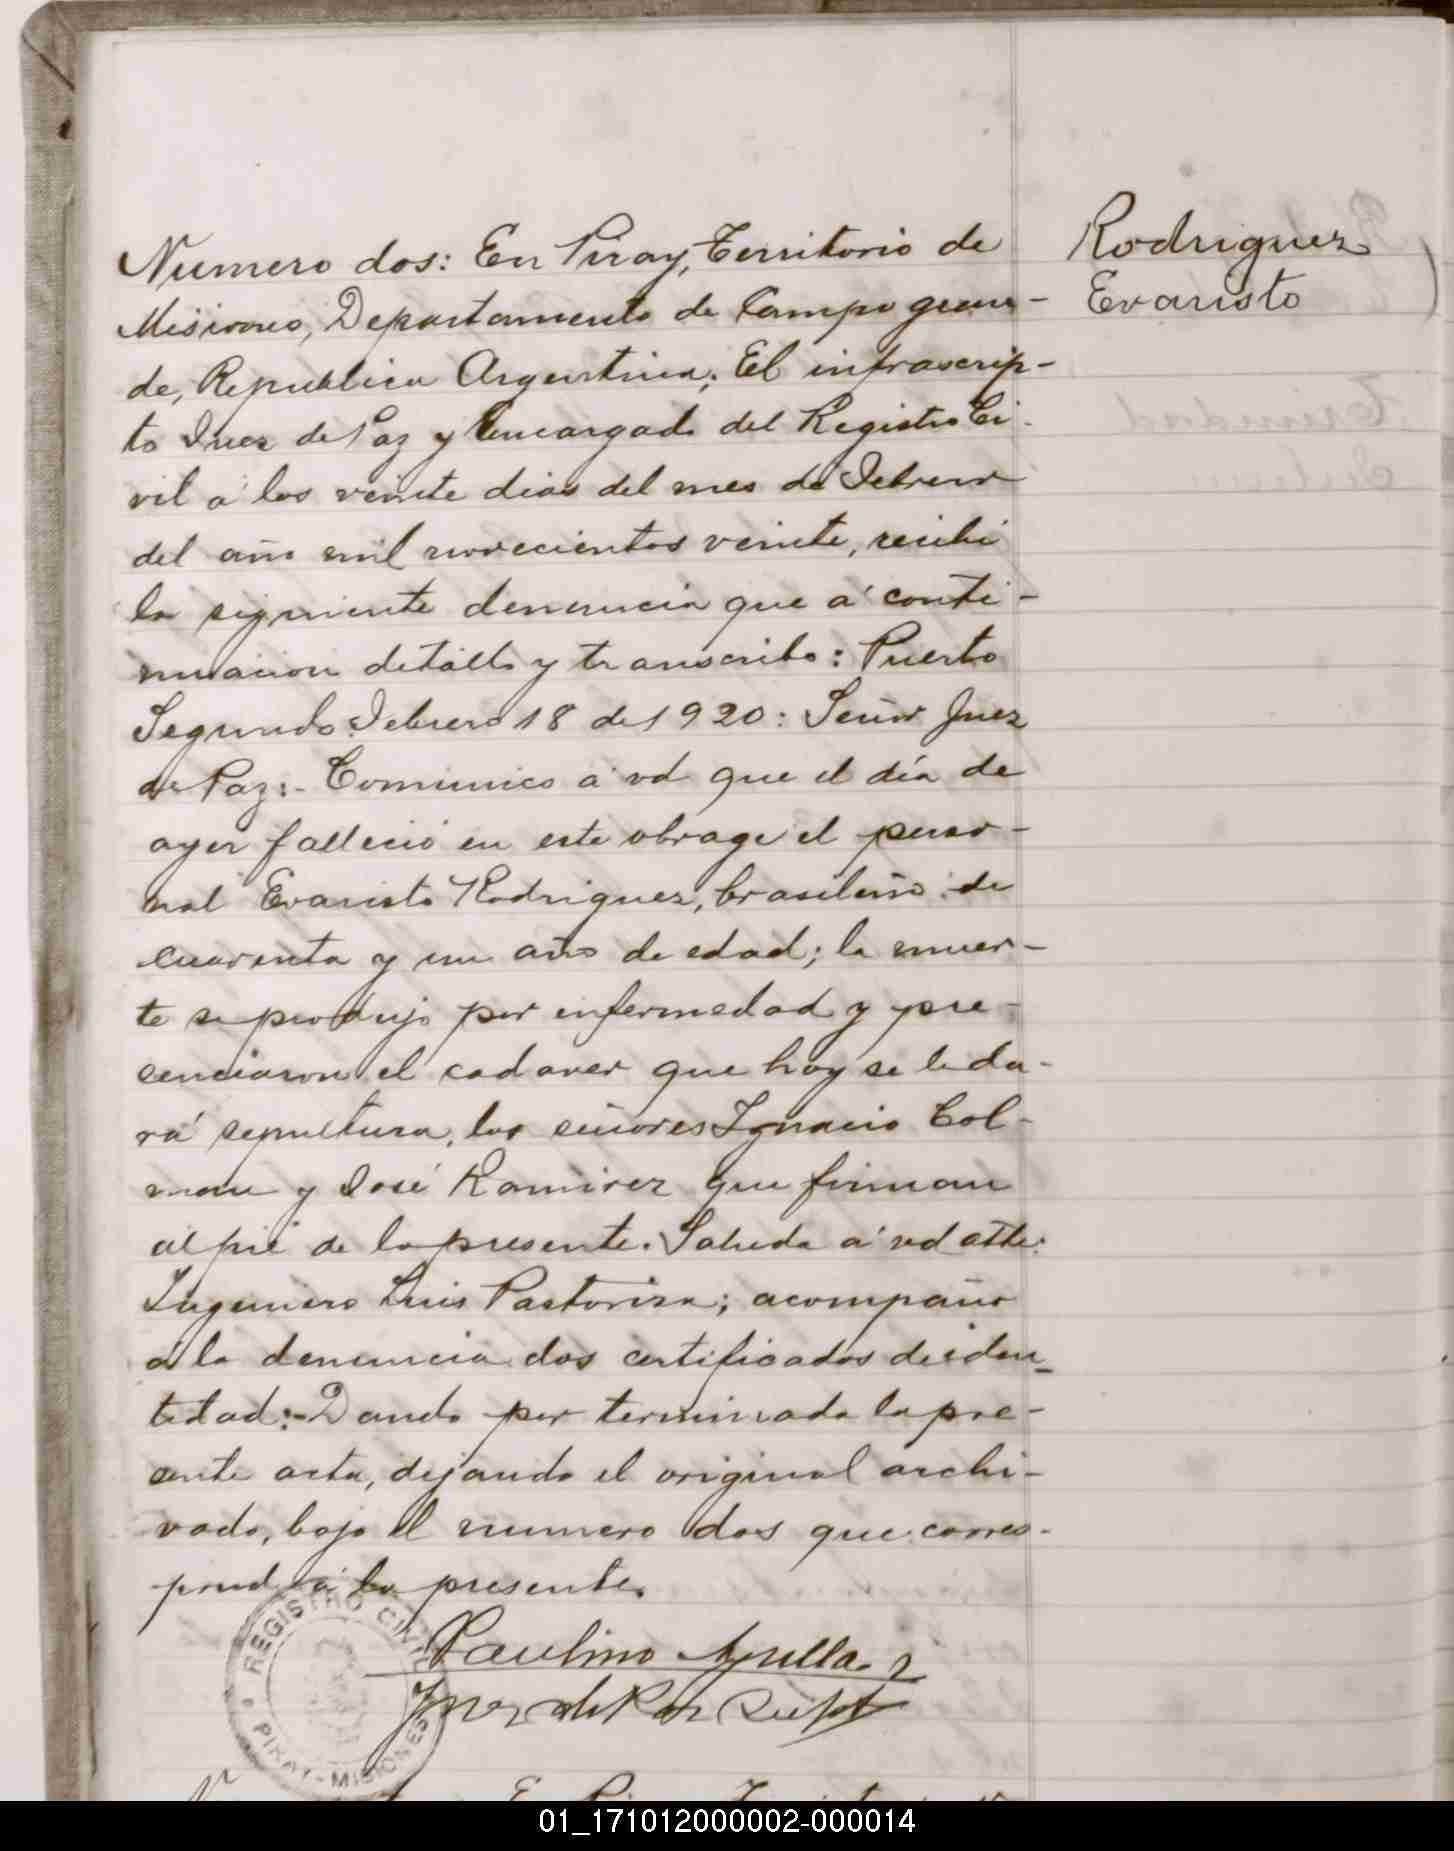 Rodriguez
Evaristo
Numero dos: En Piray, Territorio de
Misiones, Departamento de Campo gran-
de, Republica Argentina; El infrascrip-
to Juez de Paz y Encargado del Registro Ci-
vil á los veinte dias del mes de Febrero
del año mil novecientos veinte, recibi
la siguiente denuncia que á conti-
nuacion detallo y transcribo: Puerto
Segundo Febrero 18 de 1920: Señor Juez
de Paz:- Comunico á vd que el día de
ayer falleció en este obrage el perso-
nal Evaristo Rodriguez, brasileño de
cuarenta y un año de edad; la muer-
te se produjo por enfermedad y pre-
senciaron el cadaver que hoy se le da-
rá sepultura, los señores Ignacio Col-
man y José Ramirez que firman
al pié de la presente. Saluda á vd atte:
Ingeniero Luis Pastoriza; acompaño
á la denuncia dos certificados de iden-
tidad:- Dando por terminada la pre-
sente acta, dejando el original archi-
vado, bajo el numero dos que corres-
pond á la presente.
Paulino
Juez de Paz Supte
REGISTRO CIVIL
PIRAY - MISIONES
01_171012000002-000014